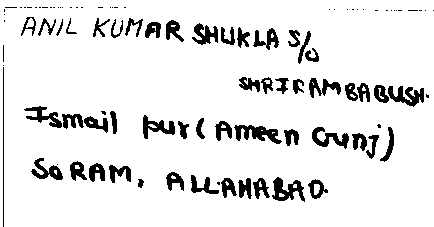 ANIL KUMAR SHUKLA S/o
SHRI RAM BABU SH.
Ismail pur (Ameen Gunj)
SORAM, ALLAHABAD.